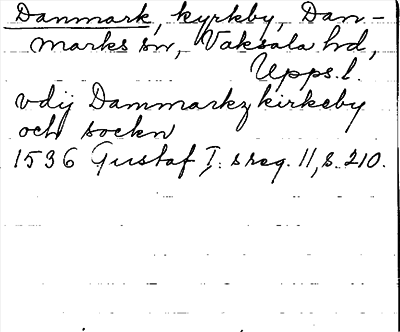 Danmark, kyrkby, Dan-
marks sn, Vaksala hd,
Upps. l.
vdij Danmarkz kirkeby
och sockn
1536 Gustaf I: s reg. 11, s. 210.